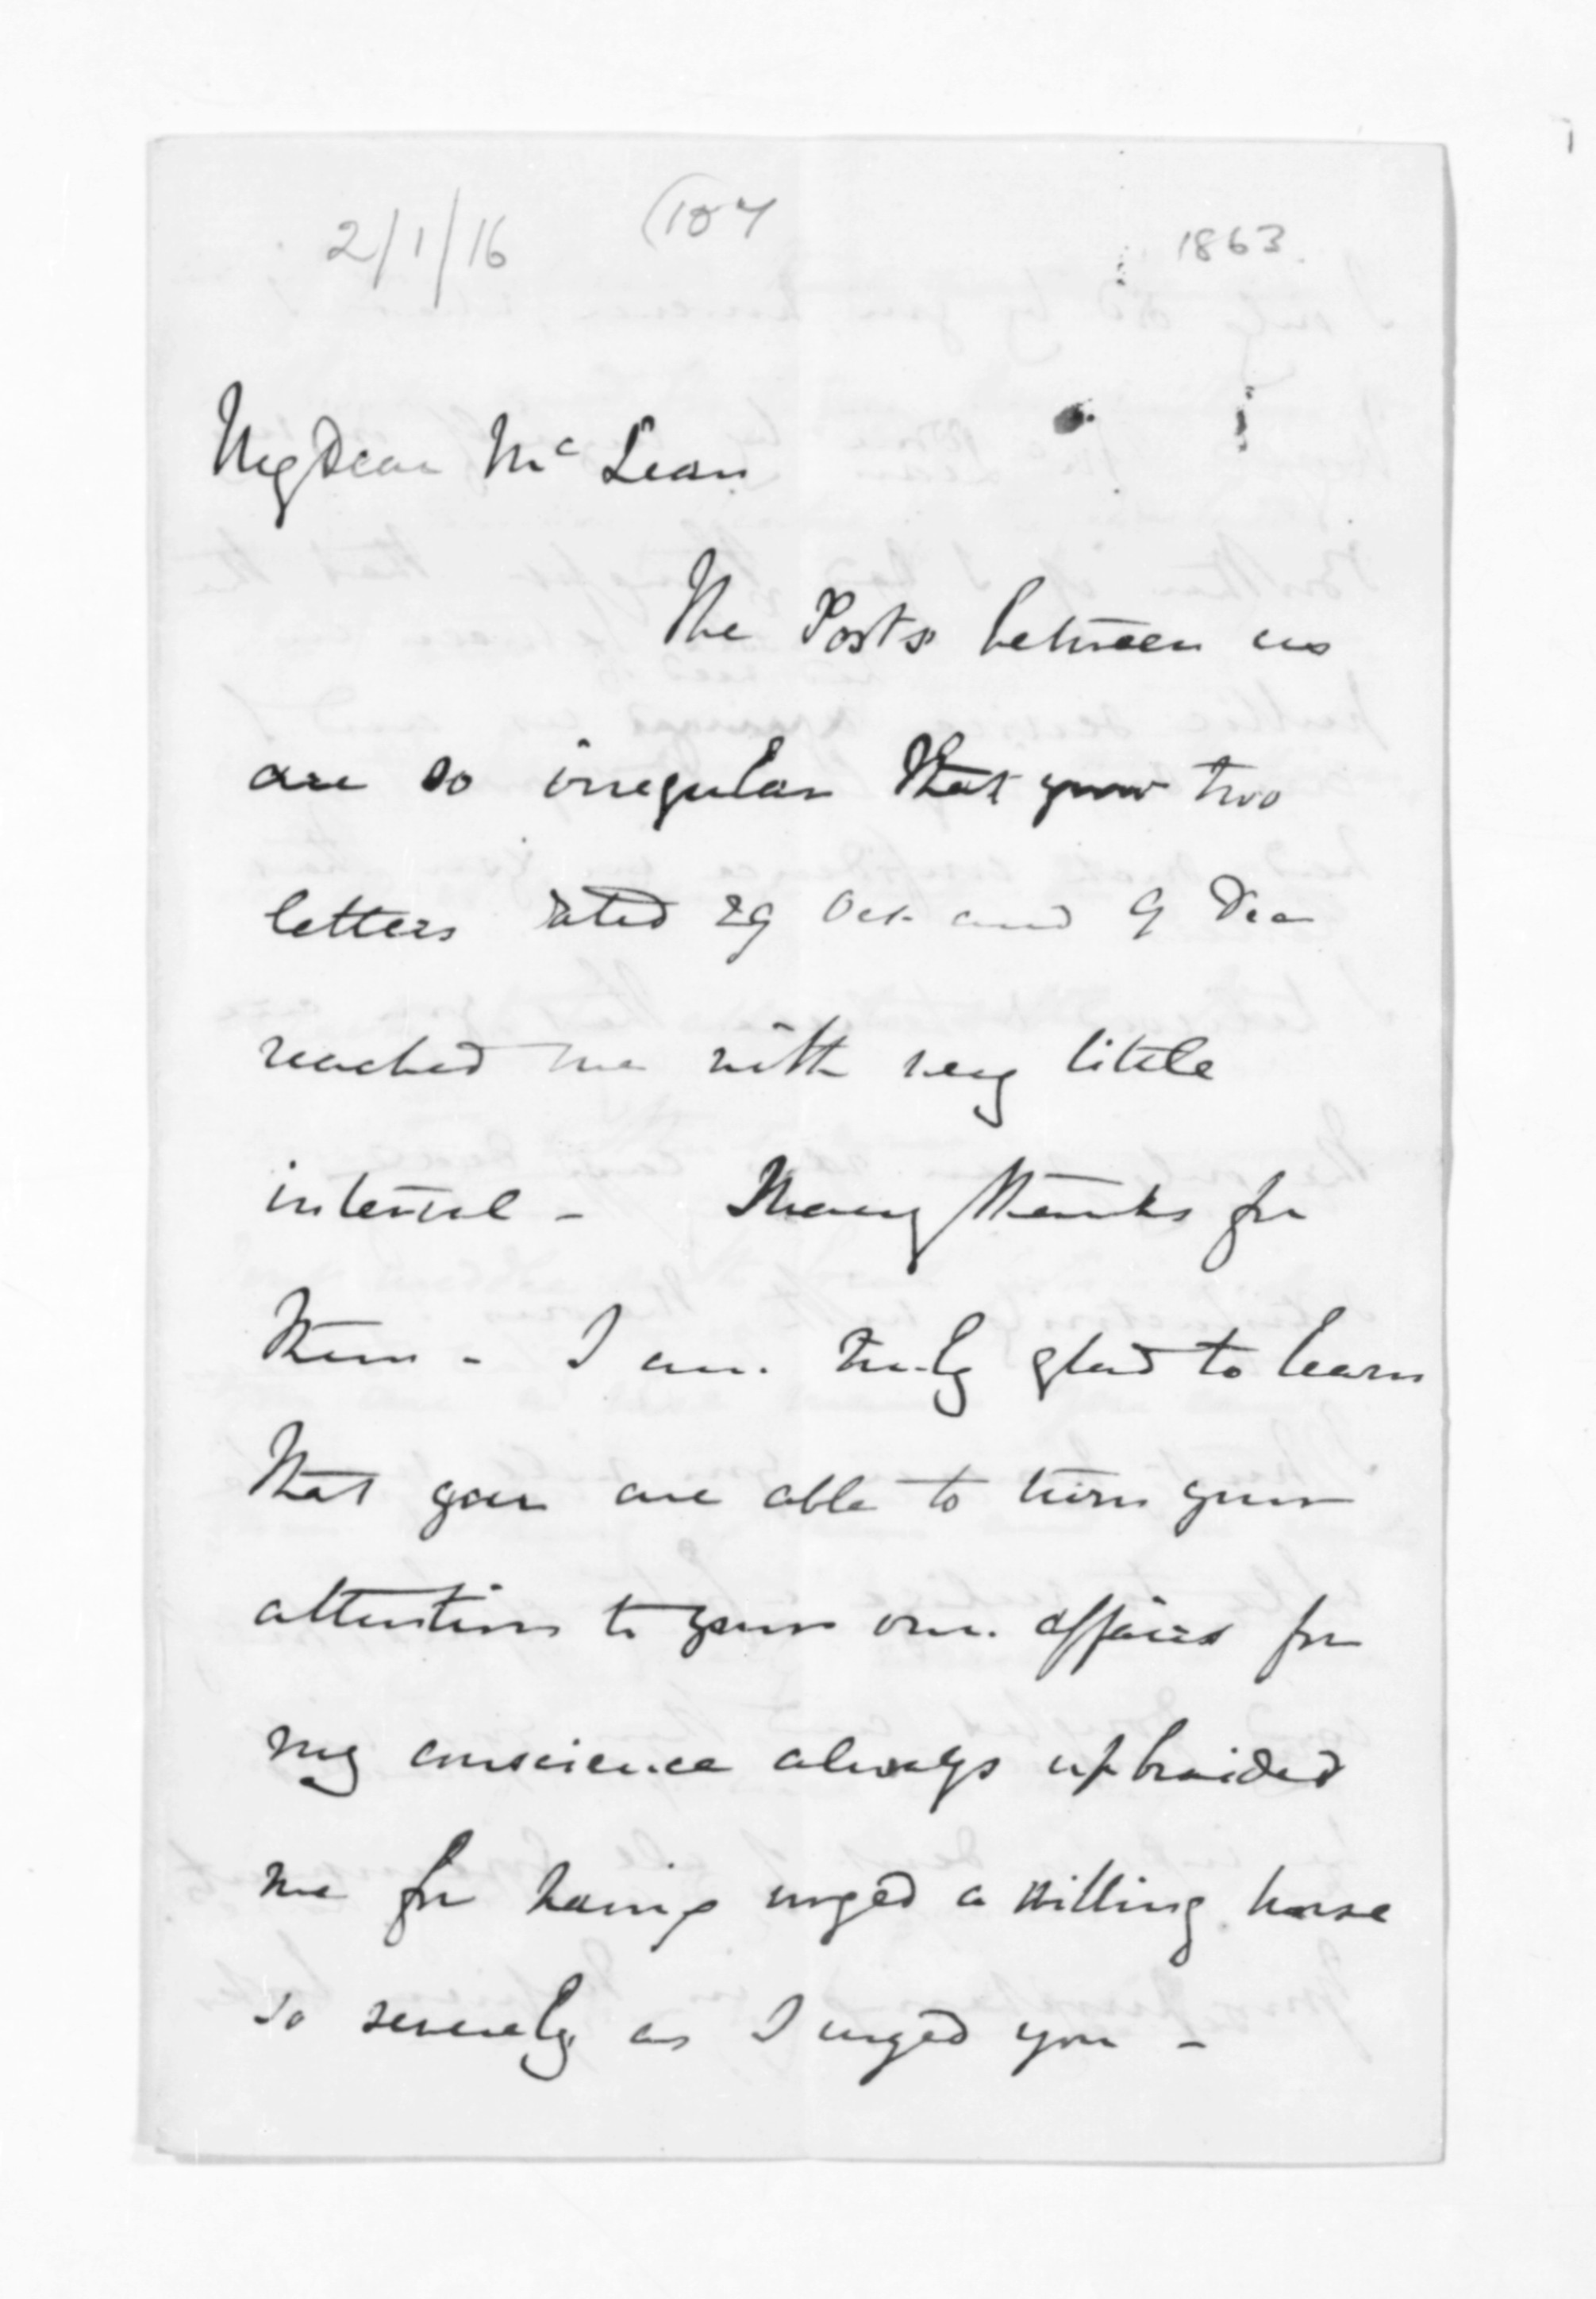 2/1/16 (104 1863.
My Dear McLean
The Posts between us
are so irregular that your two
letters dated 29 Oct and 9 Dec
reached me with very little
interval - Many thanks for
them - I am truly glad to learn
that you are able to turn your
attention to your own affairs for
my conscience always upbraided
me for having urged a willing horse
so severely as I urged you -